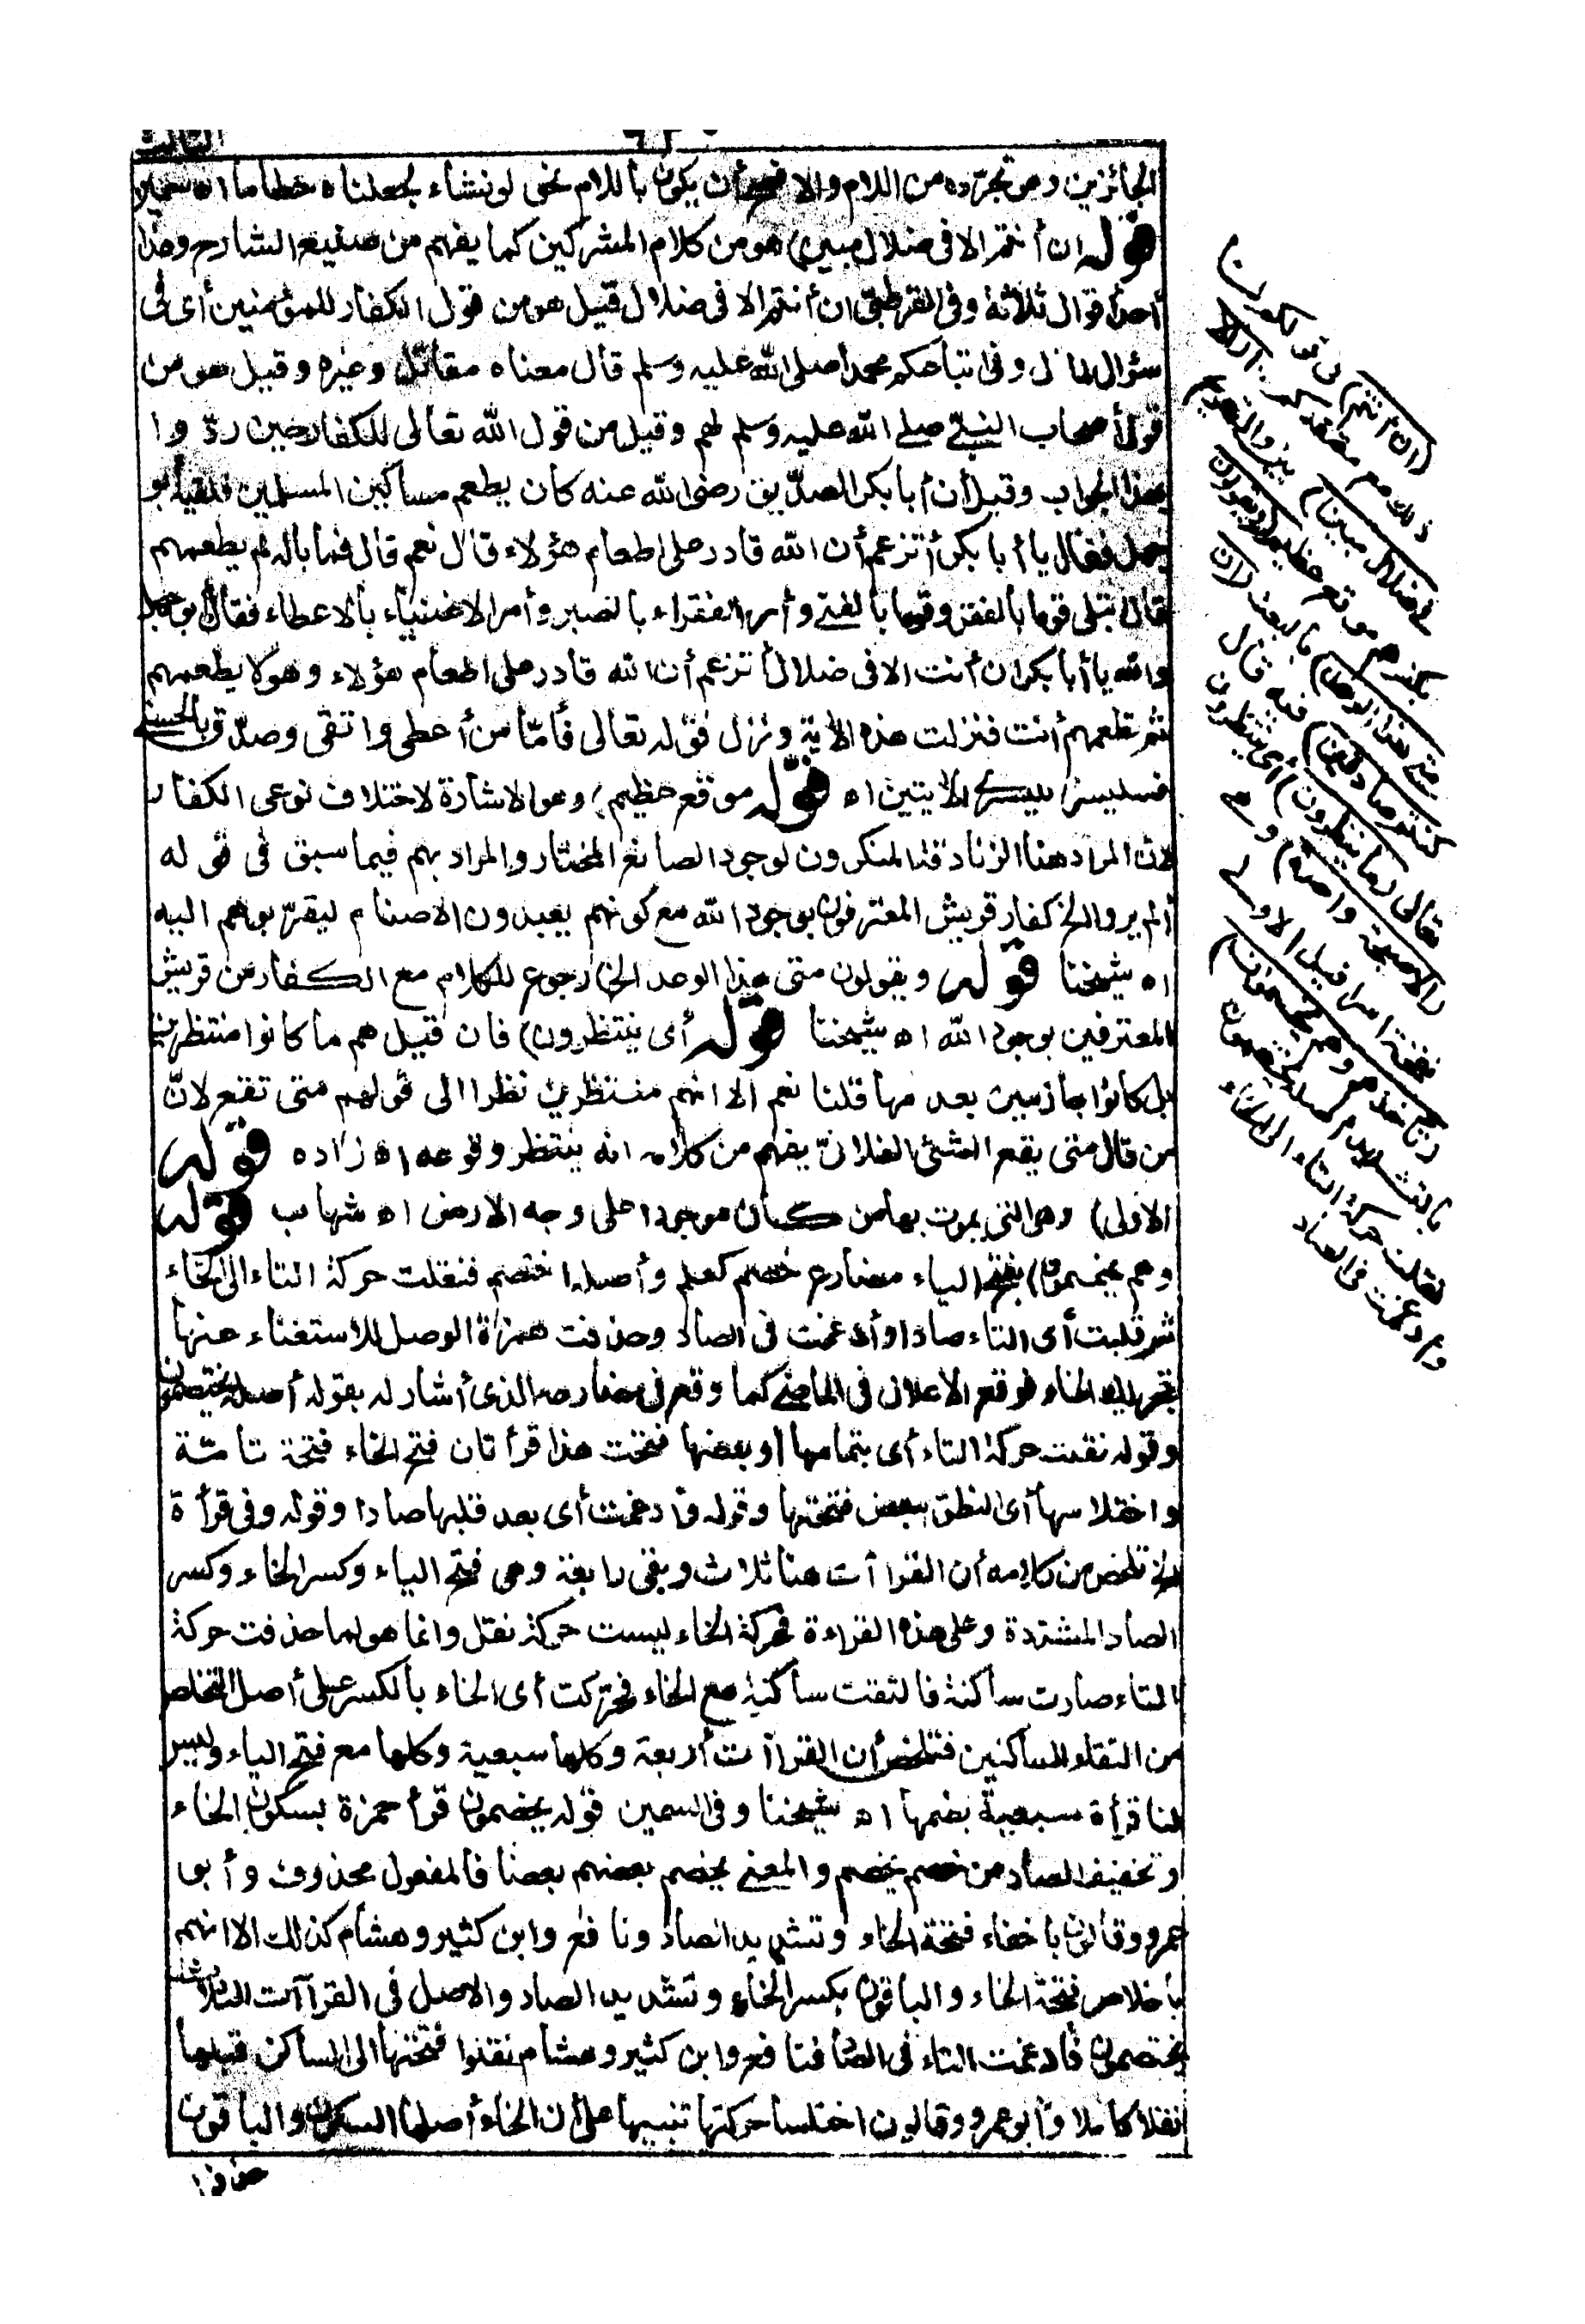 الثالث
الجائزين وهو تجرّده من اللام والافصح أن يكون باللام نحو لو نشاء لجعلناه حطاما اه سمين
قوله ان أنتم الا فى ضلال مبين) هو من كلام المشركين كما يفهم من صنيع الشارح وهذا
أحد أقوال ثلاثة وفى القرطبىّ ان أنتم الا فى ضلال قيل هو من قول الكفار للمؤمنين أى فى
سؤال المال وفى اتباعكم محمدا صلى الله عليه وسلم قال معناه مقاتل وغيره وقيل هو من
قول أصحاب النبىّ صلى الله عليه وسلم لهم وقيل من قول الله تعالى للكفار حين ردّوا
بهذا الجواب وقيل أن أبا بكر الصدّيق رضى الله عنه كان يطعم مساكين المسلمين فلقيه أبو
جهل فقال يا أبا بكر أتزعم أن الله قادر على اطعام هؤلاء قال نعم قال فما باله لم يطعمهم
قال ابتلى قوما بالفقر وقوما بالغنى وأمر الفقراء بالصبر وأمر الاغنياء بالاعطاء فقال أبو جهل
والله يا أبا بكر ان أنت الا فى ضلال أتزعم أن الله قادر على اطعام هؤلاء وهو لا يطعمهم
ثم تطعمهم أنت فنزلت هذه الاية ونزل قوله تعالى فأمّا من أعطى واتقى وصدّق بالحسنى
فسنيسره لليسرى الايتين اه قوله موقع عظيم) وهو الاشارة لاختلاف نوعى الكفار
لان المراد هنا الزنادقة المنكرون لوجود الصانع المختار والمراد بهم فيما سبق فى قوله
ألم يروا الخ كفار قريش المعترفون بوجود الله مع كونهم يعبدون الاصنام ليقرّبوهم اليه
اه شيخنا قوله ويقولون متى هذا الوعد الخ) رجوع للكلام مع الكفار من قريش
المعترفين بوجود الله اه شيخنا قوله أى ينتظرون) فان قيل هم ما كانوا منتظرين
بل كانوا جازمين بعدمها قلنا نعم الا انهم منتظرين نظرا الى قولهم متى تقع لانّ
من قال متى يقع الشئ الفلانىّ يفهم من كلامه انه ينتظر وقوعه اه زاده قوله
الاولى) وهى التى يموت بها من كان موجودا على وجه الارض اه شهاب قوله
وهم يخصمون) بفتح الياء مضارع خصم كعلم وأصله اختصم فنقلت حركة التاء الى الخاء
ثم قلبت أى التاء صادا وأدغمت فى الصاد وحذفت همزة الوصل للاستغناء عنها
بتحريك الخاء فوقع الاعلال فى الماضى كما وقع فى مضارعه الذى أشار له بقوله أصله يختصمون
وقوله نقلت حركة التاء أى بتمامها أو بعضها فتحت هذا قرأتان فتح الخاء فتحة تامّة
واختلاسها أى النطق ببعض فتحتها وقوله وأدغمت أى بعد قلبها صادا وقوله وفى قرأة
الخ تلخص من كلامه أن القراآت هنا ثلاث وبقى رابعة وهى فتح الياء وكسر الخاء وكسر
الصاد المشدّدة وعلى هذه القراءة فحركة الخاء ليست حركة نقل وانما هو لما حذفت حركة
التاء صارت ساكنة فالتقت ساكنة مع الخاء فحرّكت أى الخاء بالكسر على أصل التخلص
من التقاء الساكنين فتلخص أن القراآت أربعة وكلها سبعية وكلها مع فتح الياء وليس
لنا قرأة سبعية بضمها اه شيخنا وفى السمين قوله يخصمون قرأ حمزة بسكون الخاء
وتخفيف الصاد من خصم يخصم والمعنى يخصم بعضهم بعضا فالمفعول محذوف وأبو
عمرو وقالون باخفاء فتحة الخاء وتشديد الصاد ونافع وابن كثير وهشام كذلك الا انهم
باخلاص فتحة الخاء والباقون بكسر الخاء وتشديد الصاد والاصل فى القراآت الثلاث
يختصمون فأدغمت التاء فى الصاد فنافع وابن كثير وهشام نقلوا فتحتها الى الساكن قبلها
نقلا كاملا وأبو عمرو وقالون اختلسا حركتها تنبيها على أن الخاء أصلها السكون والباقون
حذفوا
(ان أنتم) فى قولكم
ذلك مع معتقدكم هذا (الا
فى ضلال مبين) بين والتصريح
بكفرهم موقع عظيم (ويقولون
متى هذا الوعد) بالبعث (ان
كنتم صادقين) فيه قال
تعالى (ما ينظرون) أى ينتظرون
(الا صيحة واحدة) وهى
نفخة اسرافيل الاولى
(تأخذهم وهم يخصمون)
بالتشديد أصله يختصمون
نقلت حركة التاء الى الخاء
وأدغمت فى الصاد